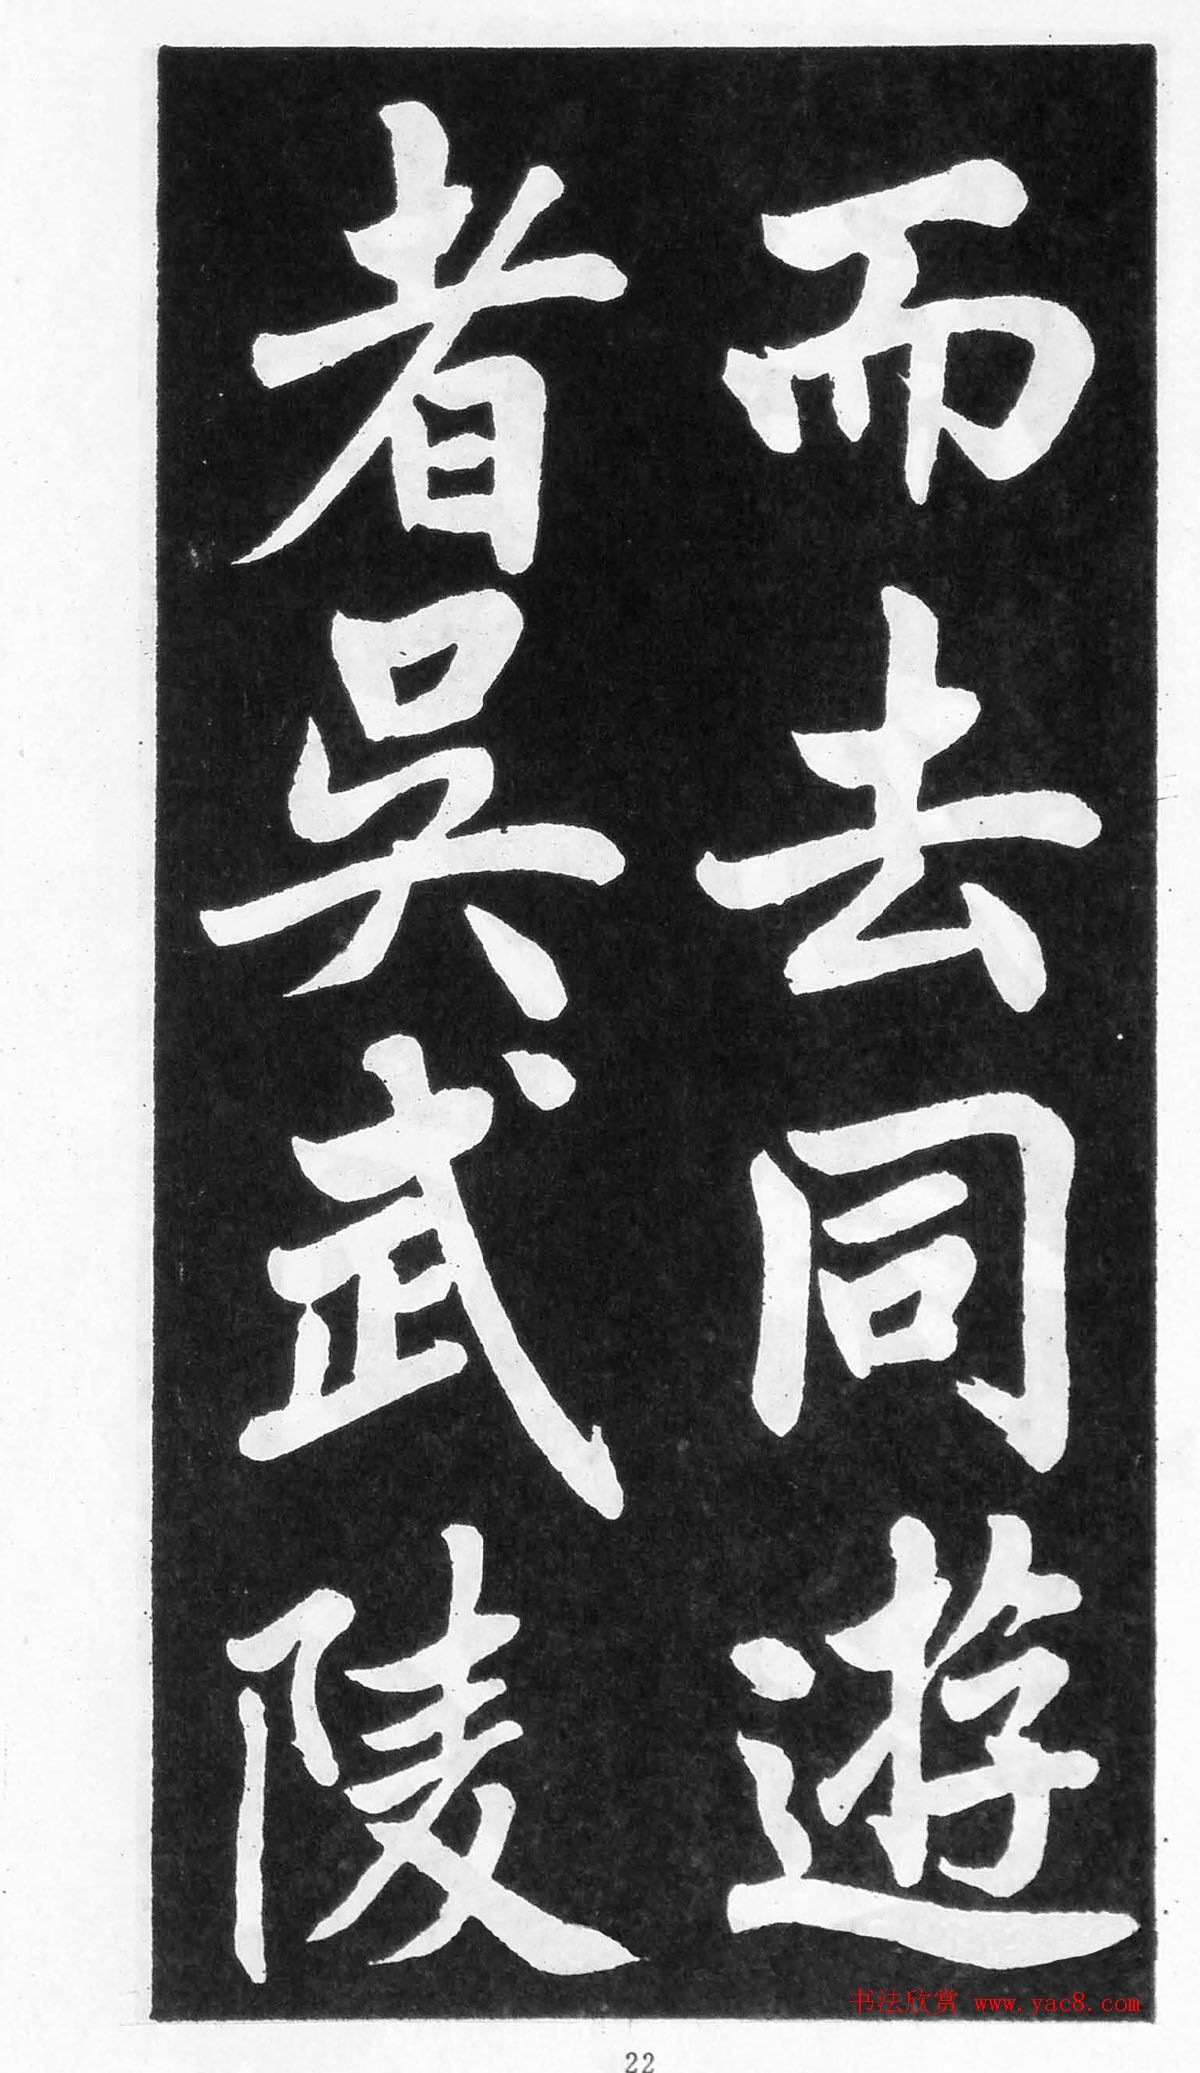 而去同遊
者吳武陵
书法欣赏 www.yac8.com
22